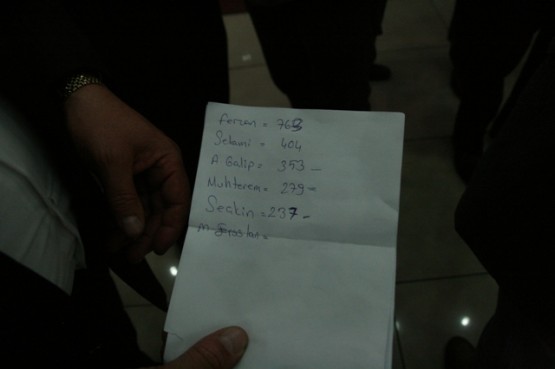 Fercan = 763
Selami = 404
A Galip = 353 –
Muhterem = 279 –
Seçkin = 237 –
M